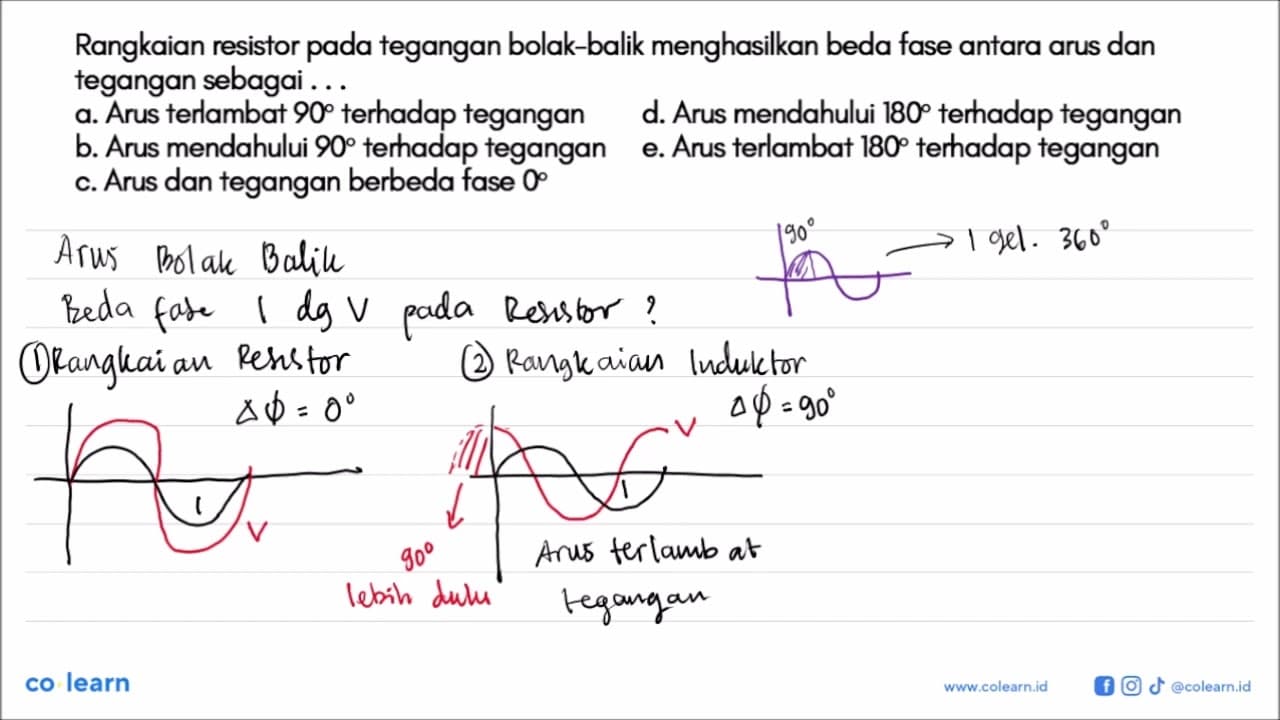 Rangkaian resistor pada tegangan bolak-balik menghasilkan beda fase antara arus dan
tegangan sebagai . . .
a. Arus terlambat 90° terhadap tegangan
b. Arus mendahului 90° terhadap tegangan
c. Arus dan tegangan berbeda fase 0°
d. Arus mendahului 180° terhadap tegangan
e. Arus terlambat 180° terhadap tegangan
Arus Bolak Balik
Beda fase I dg V pada Resistor ?
90°
1 gel. 360°
① Rangkaian Resistor
Δϕ = 0°
I
V
② Rangkaian Induktor
Δϕ = 90°
V
I
90°
lebih dulu
Arus terlambat
tegangan
co learn
www.colearn.id
@colearn.id